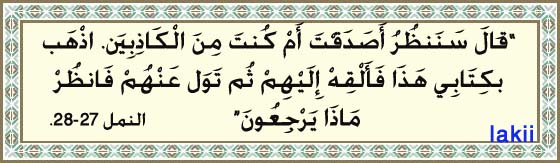 "قالَ سَنَنظُرُ أَصَدَقْتَ أَمْ كُنتَ مِنَ الْكَاذِبِينَ. اذْهَب
بِكِتَابِي هَذَا فَأَلْقِهْ إِلَيْهِمْ ثُم تَوَل عَنْهُمْ فَانظُرْ
مَاذَا يَرْجِعُونَ" النمل 27-28.
lakii